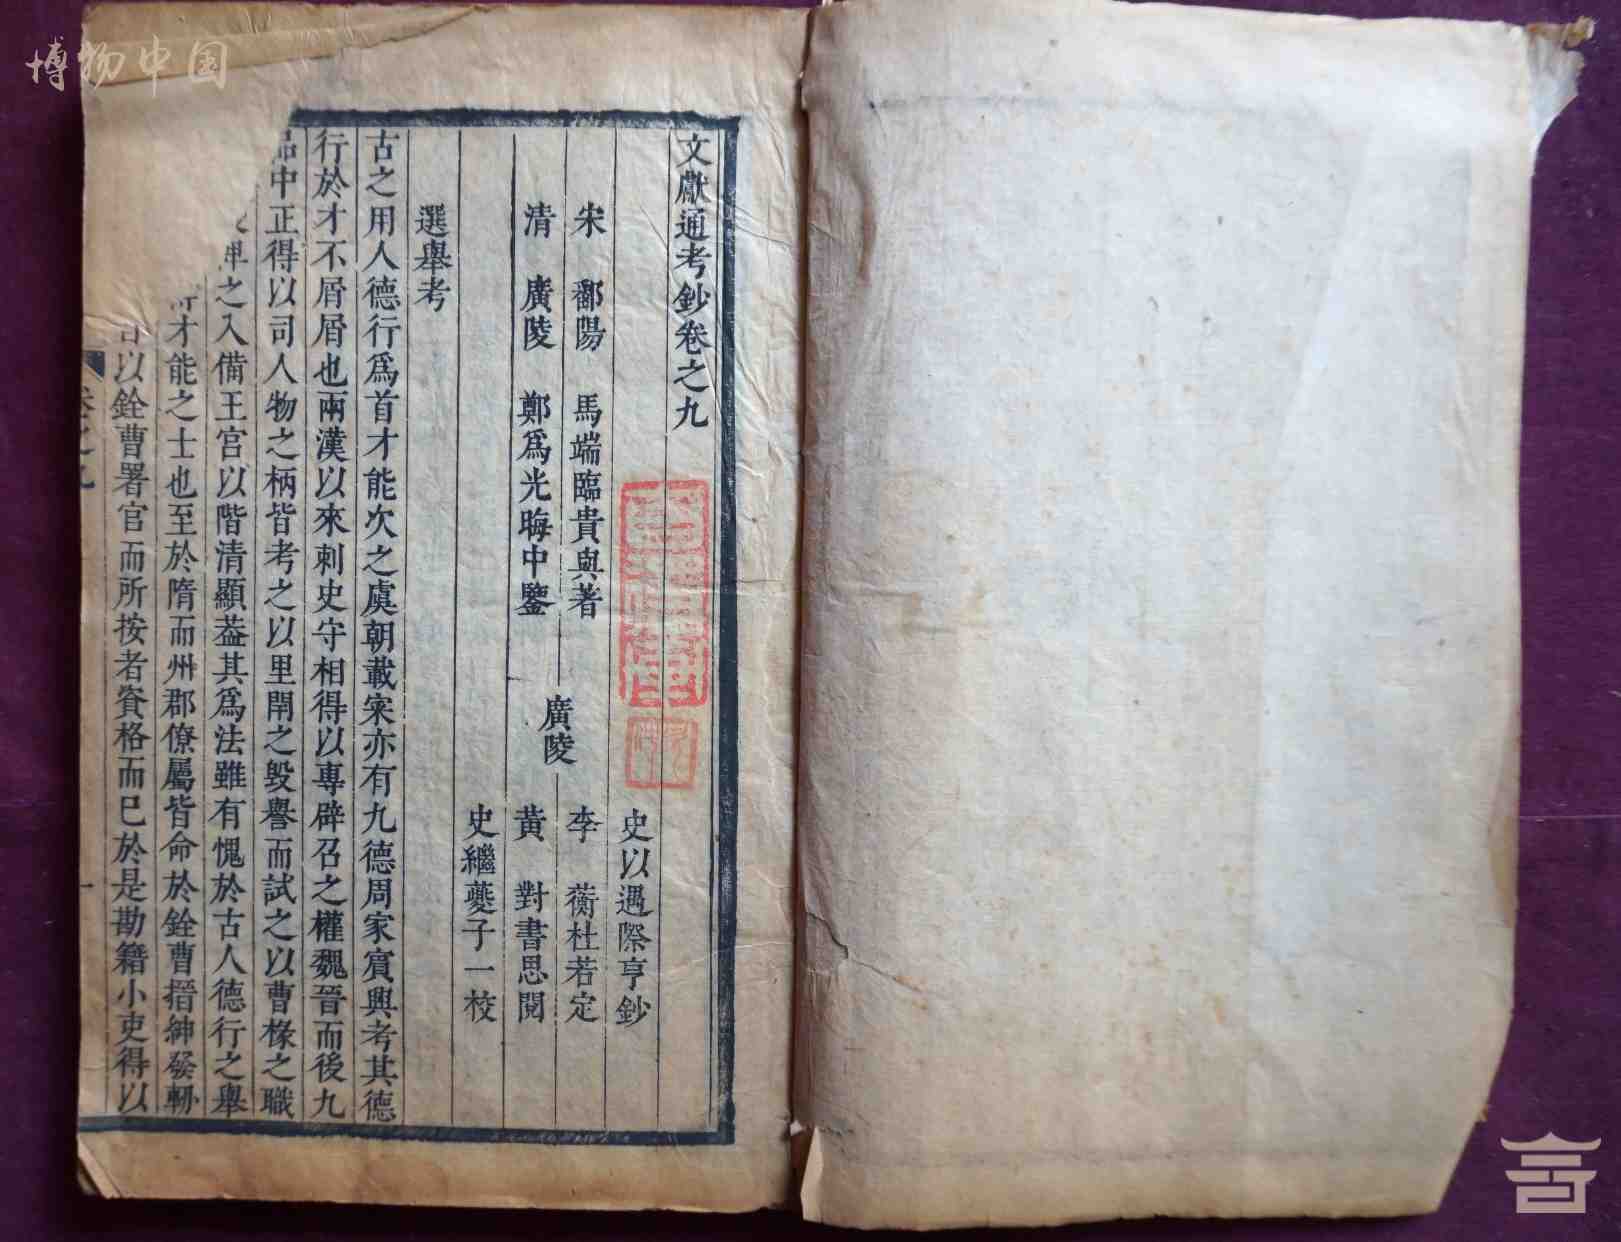 博物中国
文獻通考鈔卷之九
史以遇際亨鈔
宋 鄱陽 馬端臨貴與著
李 蘅杜若定
廣陵
清 廣陵 鄭爲光晦中鑒
黃 對書思閱
史繼夔子一校
選舉考
古之用人德行爲首才能次之虞朝載寀亦有九德周家賓興考其德
行於才不屑屑也兩漢以來刺史守相得以專辟召之權魏晉而後九
品中正得以司人物之柄皆考之以里閈之毀譽而試之以曹椽之職
之入備王宮以階清顯葢其爲法雖有愧於古人德行之舉
才能之士也至於隋而州郡僚屬皆命於銓曹搢紳發軔
以銓曹署官而所按者資格而已於是勘籍小吏得以
卷之九
一